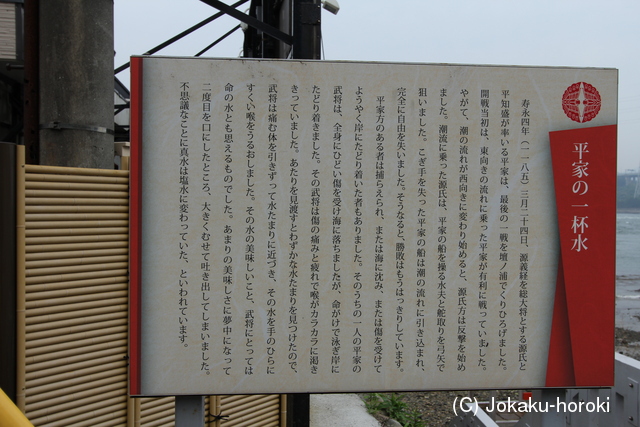 平家の一杯水
寿永四年（一一八五）三月二十四日、源義経を総大将とする源氏と
平知盛が率いる平家は、最後の一戦を壇ノ浦でくりひろげました。
開戦当初は、東向きの流れに乗った平家が有利に戦っていましたが、
やがて、潮の流れが西向きに変わり始めると、源氏方は反撃を始め
ました。潮流に乗った源氏は、平家の船を操る水夫と舵取りを弓矢で
狙いました。こぎ手を失った平家の船は潮の流れに引き込まれ、
完全に自由を失いました。そうなると、勝敗はもうはっきりしています。
平家方のある者は捕らえられ、または海に沈み、または傷を受けて
ようやく岸にたどり着いた者もありました。そのうちの一人の平家の
武将は、全身にひどい傷を受け海に落ちましたが、命がけで泳ぎ岸に
たどり着きました。その武将は傷の痛みと疲れで喉がカラカラに渇き
きっていました。あたりを見渡すとわずかな水たまりを見つけたので、
武将は痛む体を引きずって水たまりに近づき、その水を手のひらに
すくい喉をうるおしました。その水の美味しいこと、武将にとっては
命の水とも思えるものでした。あまりの美味しさに夢中になって
二度目を口にしたところ、大きくむせて吐き出してしまいました。
不思議なことに真水は塩水に変わっていた、といわれています。
(C) Jokaku-horoki